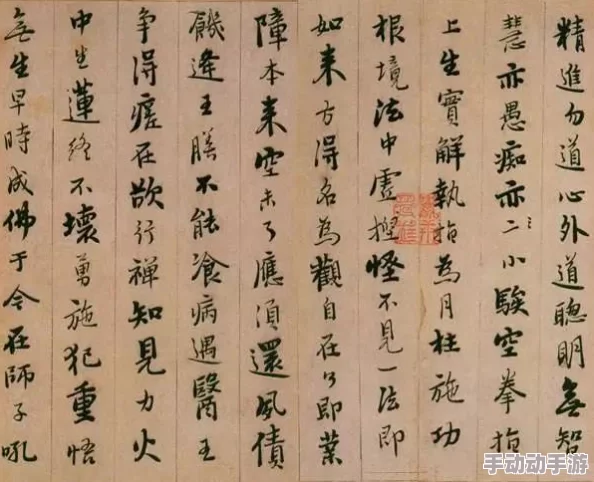 精進勿道心外道聰明無智
慧亦愚痴亦二小騃空拳指
上生實解執指為月枉施功
根境法中虛捏怪不見一法即
如来方得名為觀自在了即業
障本来空未了應須還夙債
飢逢王膳不能飡病遇醫王
争得瘥在欲行禅知見力火
中生蓮終不壞勇施犯重悟
無生早時成佛于今在師子吼
手动动手游